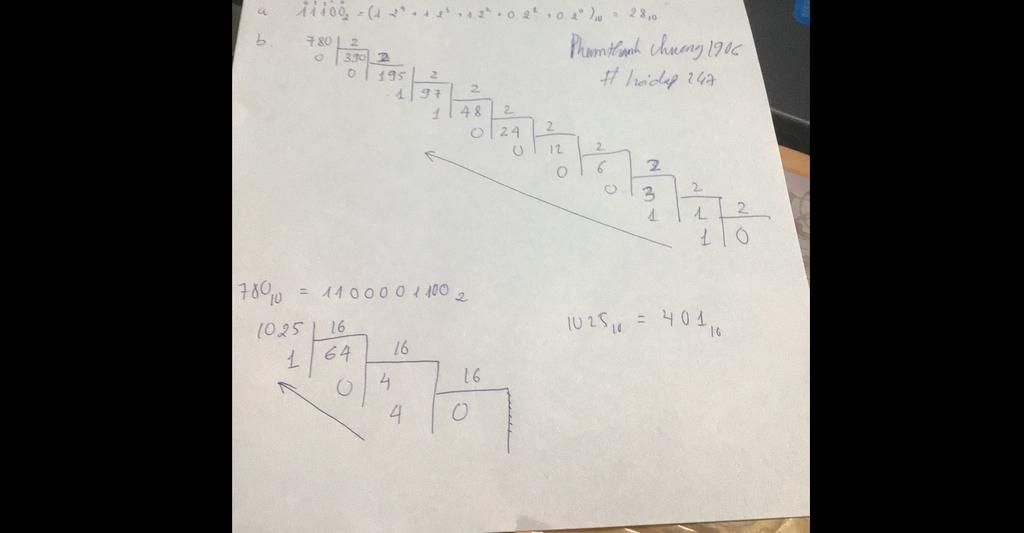 a 11100₂ = (1.2⁴ + 1.2³ + 1.2² + 0.2¹ + 0.2⁰)₁₀ = 28₁₀
b. 780 2
0 390 2
0 195 2
1 97 2
1 48 2
0 24 2
0 12 2
0 6 2
0 3 2
1 1 2
1 0
Phamthanh chuong 1906
# hoidap 247
780₁₀ = 1100001100₂
1025 16
1 64 16
0 4 16
4 0
1025₁₀ = 401₁₆